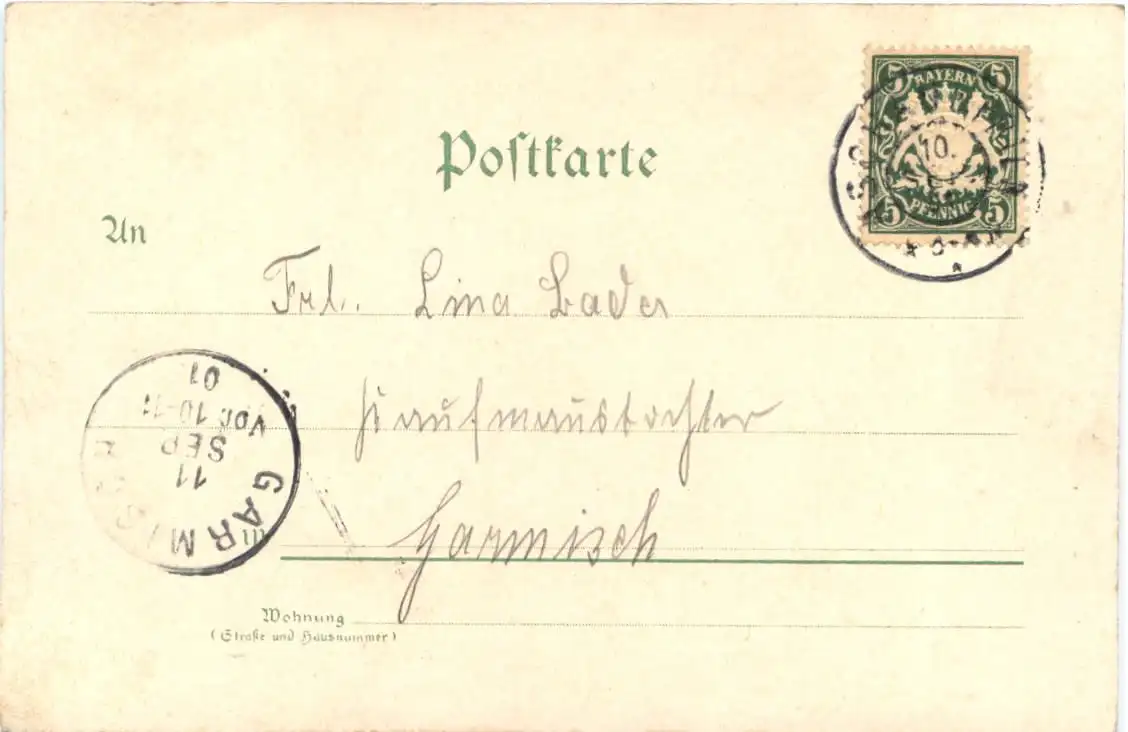 5 BAYERN 5
10.
5 PFENNIG 5
Postkarte
An
Frl. Lina Bader
Kaufmannstochter
in Garmisch
Wohnung
(Straße und Hausnummer)
GARMISCH
11
SEP
Vor. 10-11
01